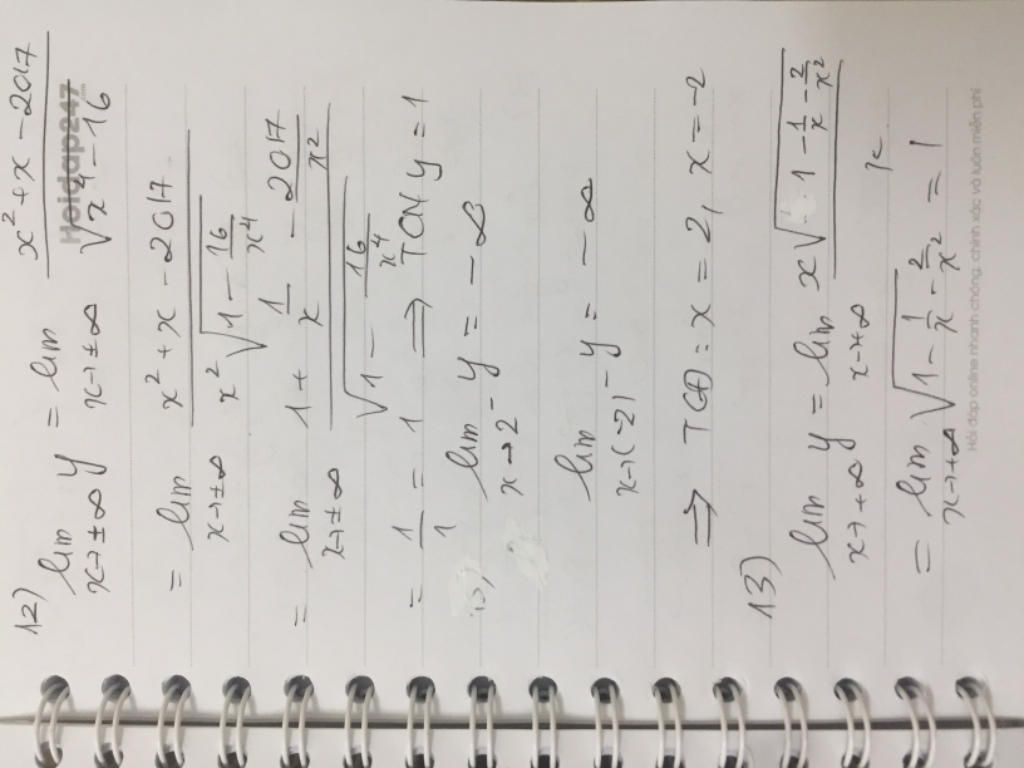 12) lim x→±∞ y = lim x→±∞ (x² + x - 2017)/√(x⁴ - 16)
Hoidap247
= lim x→±∞ (x² + x - 2017)/(x²√(1 - 16/x⁴))
= lim x→±∞ (1 + 1/x - 2017/x²)/√(1 - 16/x⁴)
= 1/1 = 1 ⇒ TCN y = 1
lim x→2⁻ y = -∞
lim x→(-2)⁻ y = -∞
⇒ TCĐ: x = 2, x = -2
13)
lim x→+∞ y = lim x→+∞ x√(1 - 1/x - 2/x²)/x
= lim x→+∞ √(1 - 1/x - 2/x²) = 1
Hỏi đáp online nhanh chóng, chính xác và luôn miễn phí